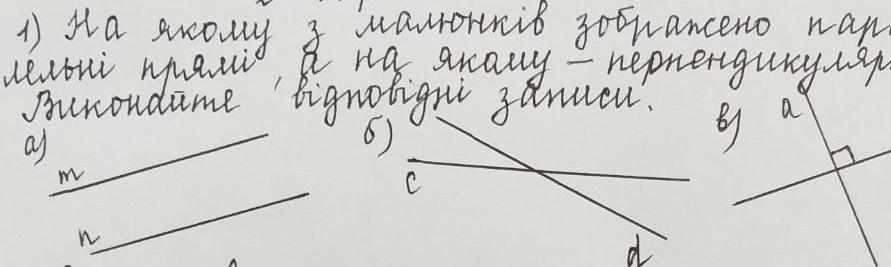 1) На якому з малюнків зображено пар
лельні прямі, а на якому – перпендикуляр
Виконайте відповідні записи.
а) б) в)
m
n
c
d
a